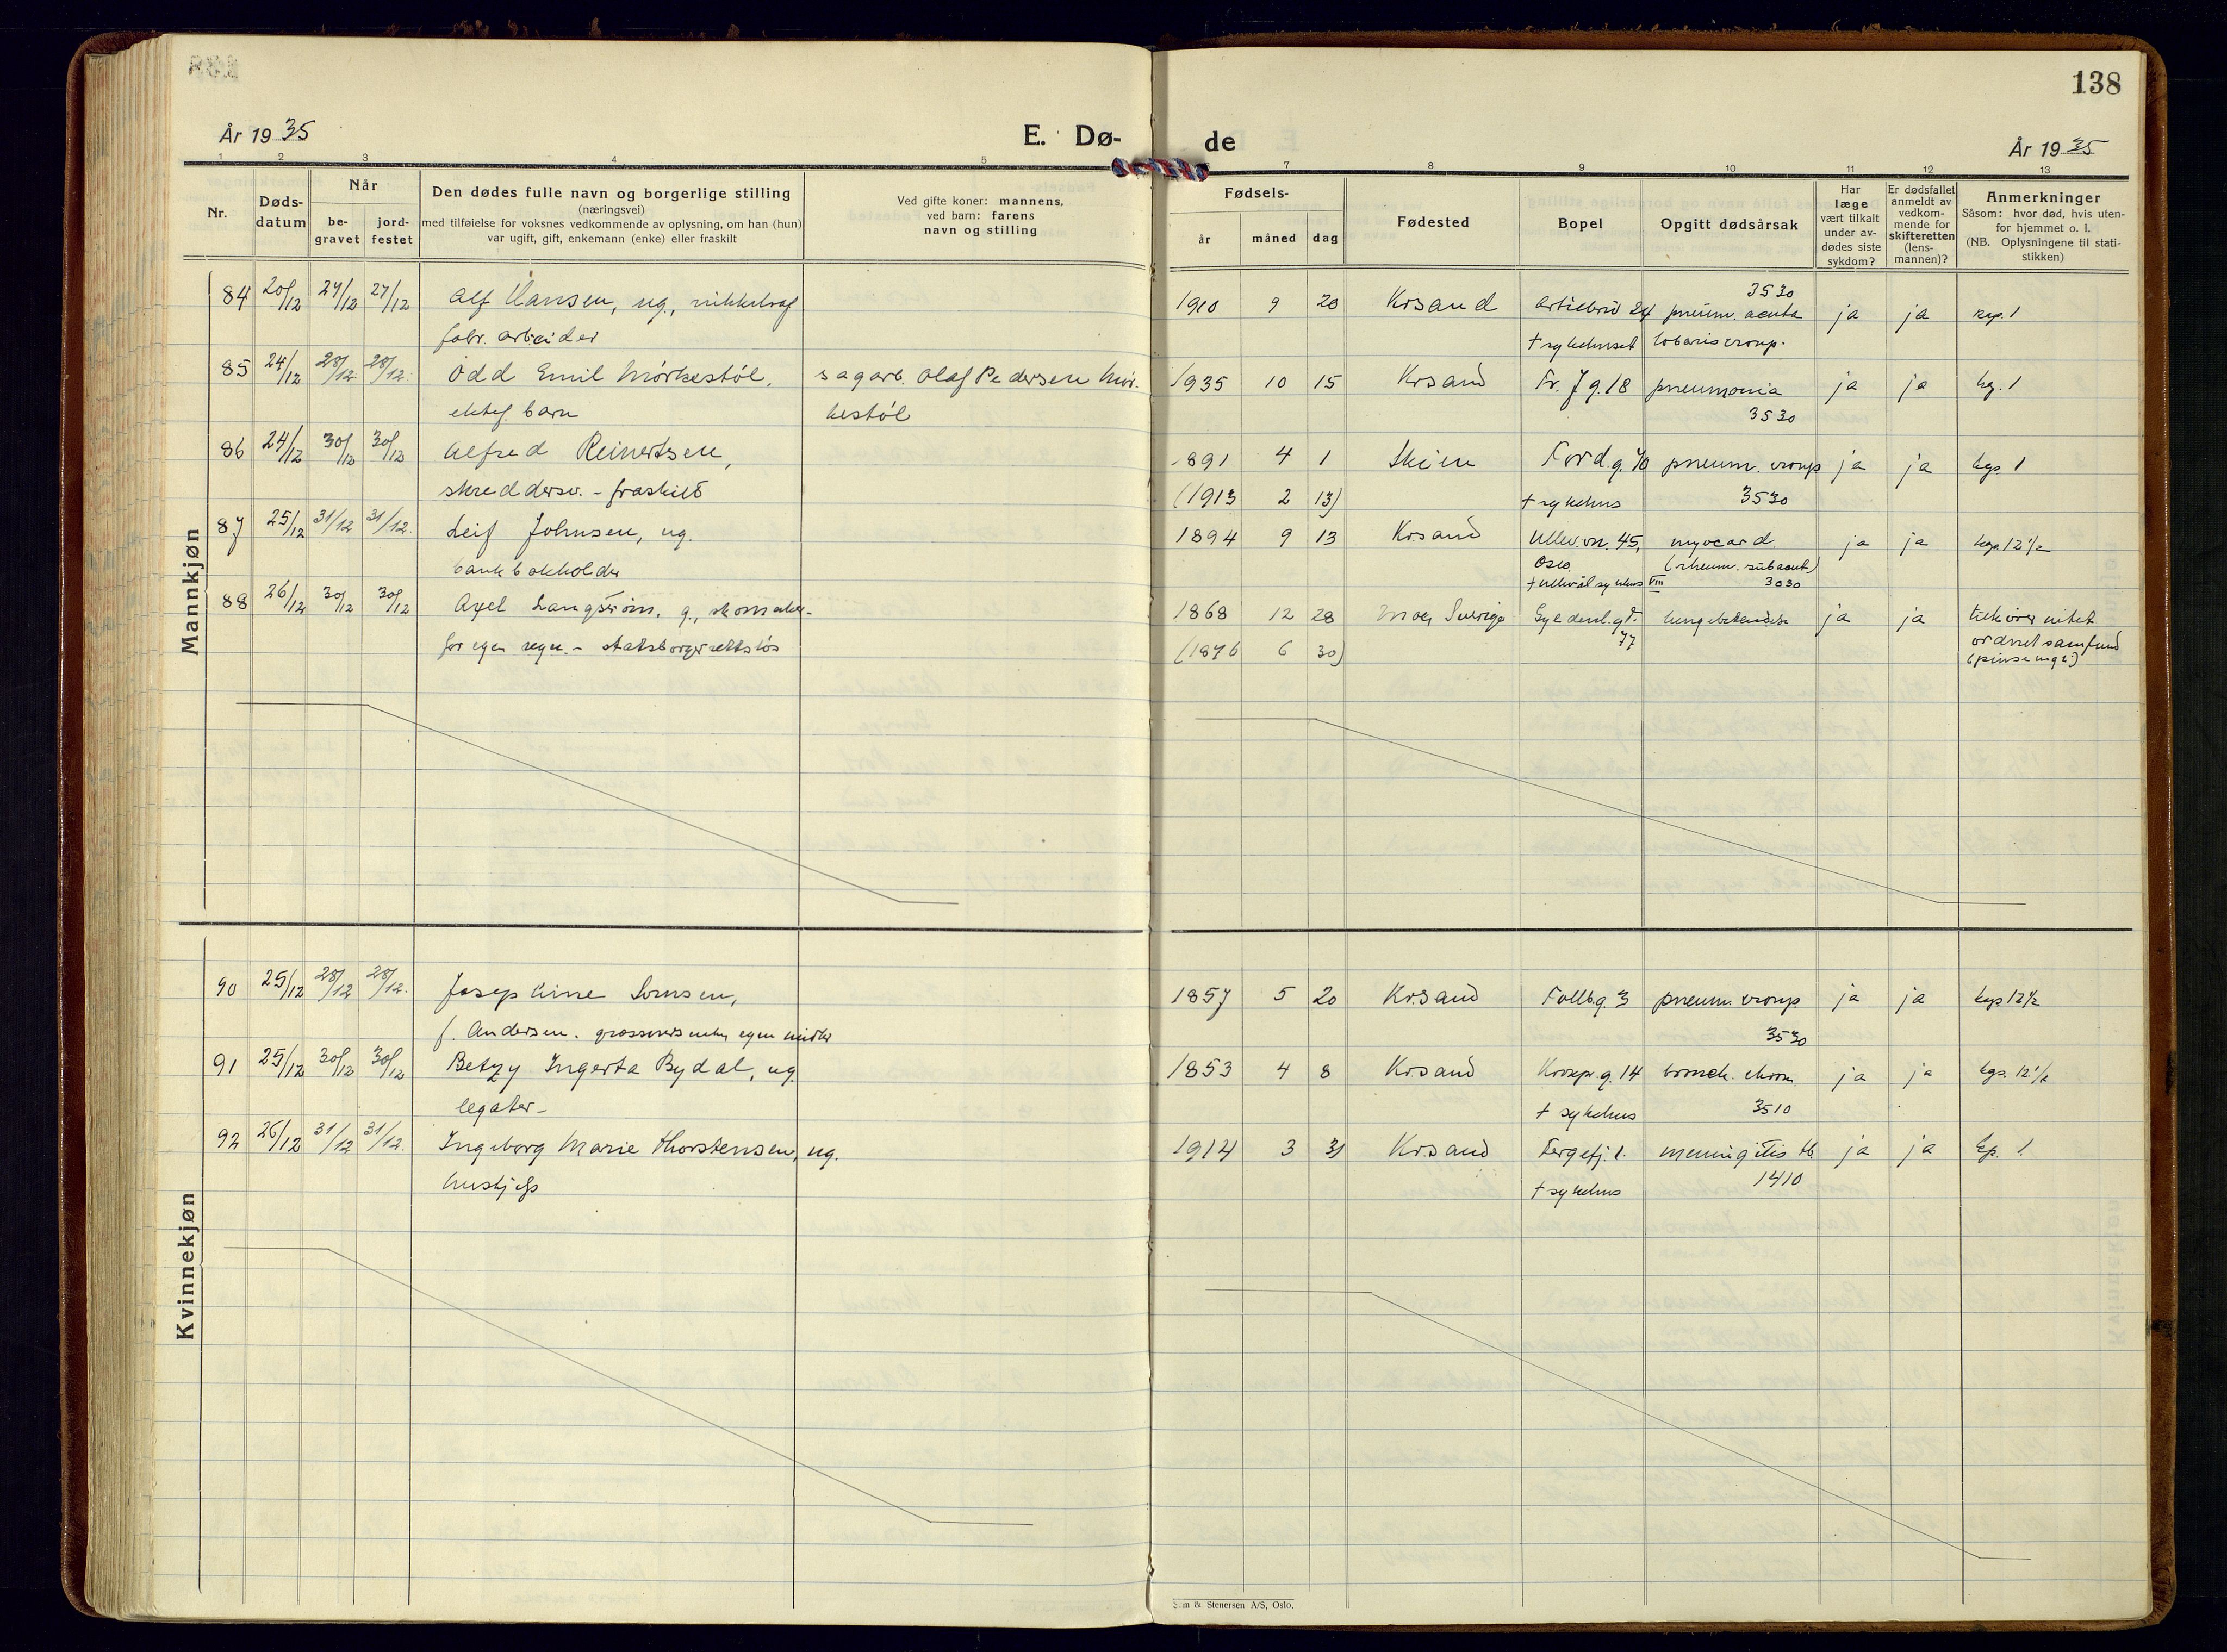 138
År 1935
E. Dø-
de
År 1935
1 2 3 4 5 7 8 9 10 11 12 13
Nr.
Døds-
datum
Når
be-
gravet
jord-
festet
Den dødes fulle navn og borgerlige stilling
(næringsvei)
med tilføielse for voksnes vedkommende av oplysning, om han (hun)
var ugift, gift, enkemann (enke) eller fraskilt
Ved gifte koner: mannens,
ved barn: farens
navn og stilling
Fødsels-
år måned dag
Fødested
Bopel
Opgitt dødsårsak
Har
læge
vært tilkalt
under av-
dødes siste
sykdom?
Er dødsfallet
anmeldt av
vedkom-
mende for
skifteretten
(lens-
mannen)?
Anmerkninger
Såsom: hvor død, hvis uten-
for hjemmet o. l.
(NB. Oplysningene til stati-
stikken)
Mannkjøn
84 20/12 27/12 27/12 Alf Hansen, ug., nikkelraf
fabr. arbeider
1910 9 20 Krsand 3530 pneum. acuta ja ja kap. 1
+ sykehuset lobaris croup.
85 24/12 28/12 28/12. Odd Emil Mørkestøl, sagarb. Olaf Pedersen Mør-
ektef. barn kestøl
1935 10 15 Krsand Fr. J g. 18 pneumonia ja ja kg. 1
3530
86 24/12 30/12 30/12 Alfred Reinertsen,
skreddersv. - fraskilt
1891 4 1 Skien pneum. croup ja ja kgs 1
(1913 2 13) + sykehus 3530
87 25/12 31/12 31/12. Leif Johnsen, ug.
bankbokholder
1894 9 13 Krsand Ullev.vn. 45, myocard. ja ja kap. 12 1/2
Oslo. (rheum. subacut)
+ Ullevål sykehus VIII 3030
88 26/12 30/12 30/12 Axel Langström, g., skomaker-
for egen regn. - statsborgerrettsløs
1868 12 28 Sverige Gyldenl.gt. lungebetendelse ja ja
77
(1876 6 30) ordnet samfund
(pinseviger)
Kvinnekjøn
90 25/12 28/12 28/12. Josephine Lomsen,
f. Andersen. grossererenke, egne midler
1857 5 20 Krsand Tollb.g. 3 pneum. croup ja ja kap 12 1/2
3530
91 25/12 30/12 30/12 Betzy Ingerta Bydal, ug.
legater -
1853 4 8 Krsand Kronpr. g. 14 bronch. chron. ja ja kgs. 12 1/2
+ sykehus 3510
92 26/12 31/12 31/12. Ingeborg Marie Thorstensen, ug.
hushjelp
1914 3 31 Krsand Fergefj. 1. meningitis tb. ja ja kp. 1
+ sykehus 1410
Sem & Stenersen A/S, Oslo.